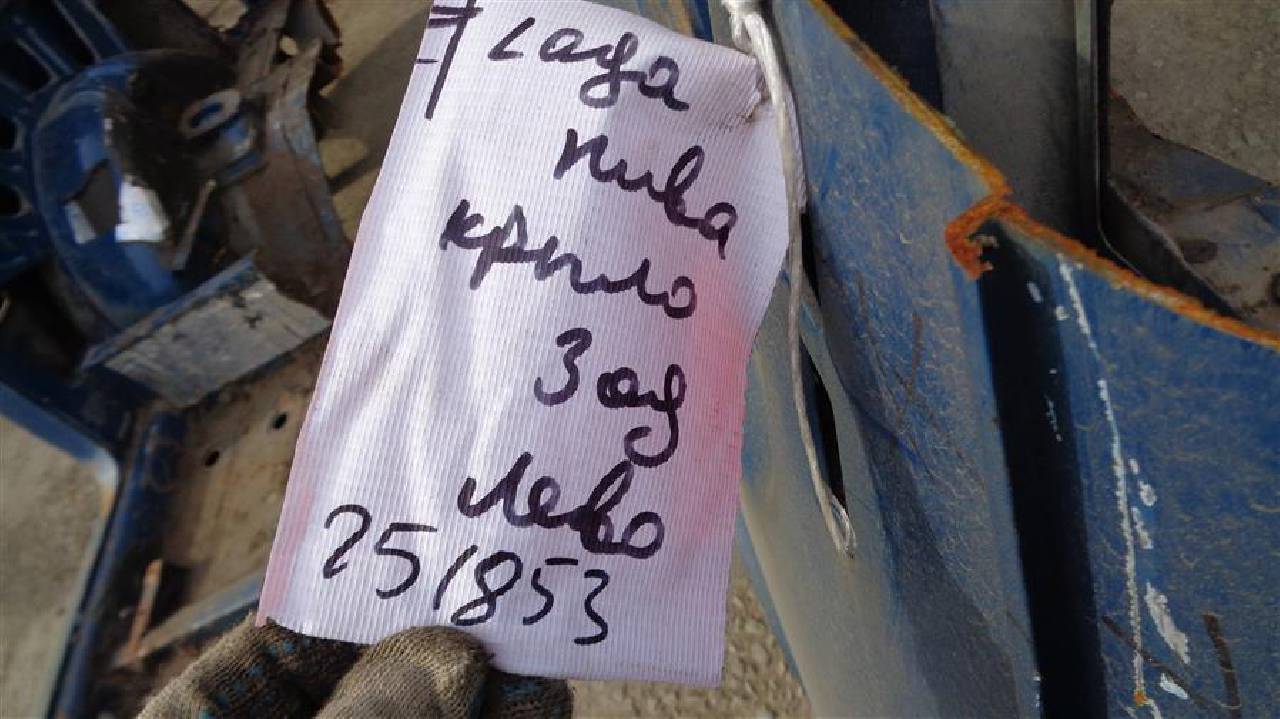 Lада
Нива
крыло
Зад
Лево
251853